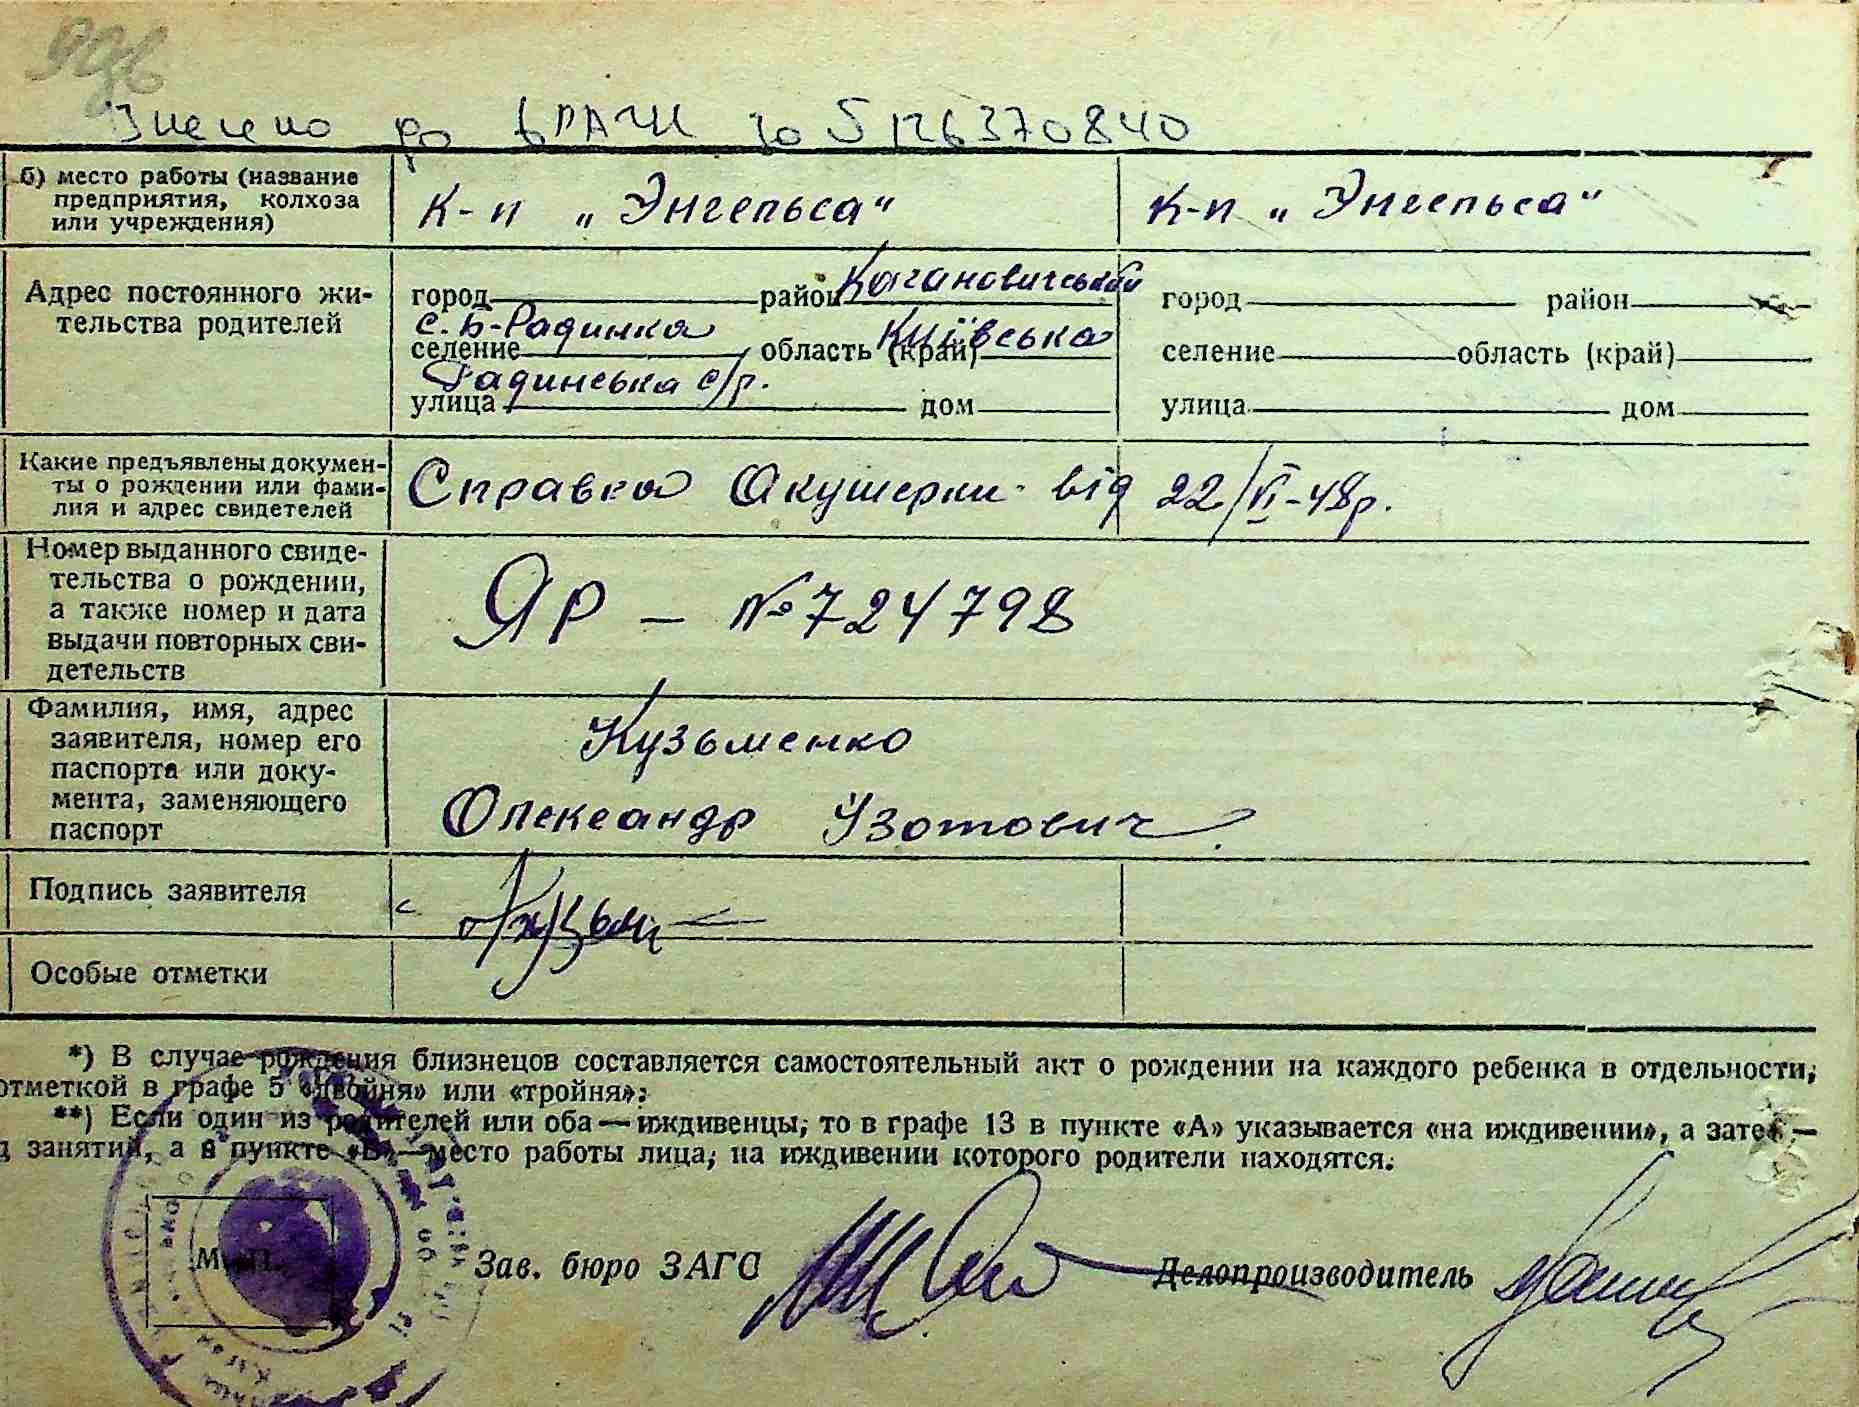 Внесено до ДРАЦС за 5126370840
б) место работы (название предприятия, колхоза или учреждения)
к-п „Энгельса“
к-п „Энгельса“
Адрес постоянного жи-
тельства родителей
город район Кагановичський
город район
с. Б-Радинка Київська
селение область (край)
селение область (край)
Радинська с/р.
улица дом
улица дом
Какие предъявлены докумен-
ты о рождении или фами-
лия и адрес свидетелей
Справка Акушерки від 22/VI-48р.
Номер выданного свиде-
тельства о рождении,
а также номер и дата
выдачи повторных сви-
детельств
ЯР – № 724798
Фамилия, имя, адрес
заявителя, номер его
паспорта или доку-
мента, заменяющего
паспорт
Кузьменко
Олександр Ізотович
Подпись заявителя
Особые отметки
*) В случае рождения близнецов составляется самостоятельный акт о рождении на каждого ребенка в отдельности,
отметкой в графе 5 «двойня» или «тройня»;
**) Если один из родителей или оба — иждивенцы, то в графе 13 в пункте «А» указывается «на иждивении», а зате —
д занятий, а в пункте «Б» — место работы лица, на иждивении которого родители находятся.
М. П.
Зав. бюро ЗАГС
Делопроизводитель